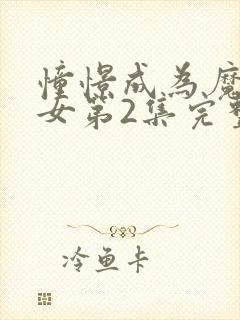 憧憬成為魔
女第2集完整
冷鱼卡